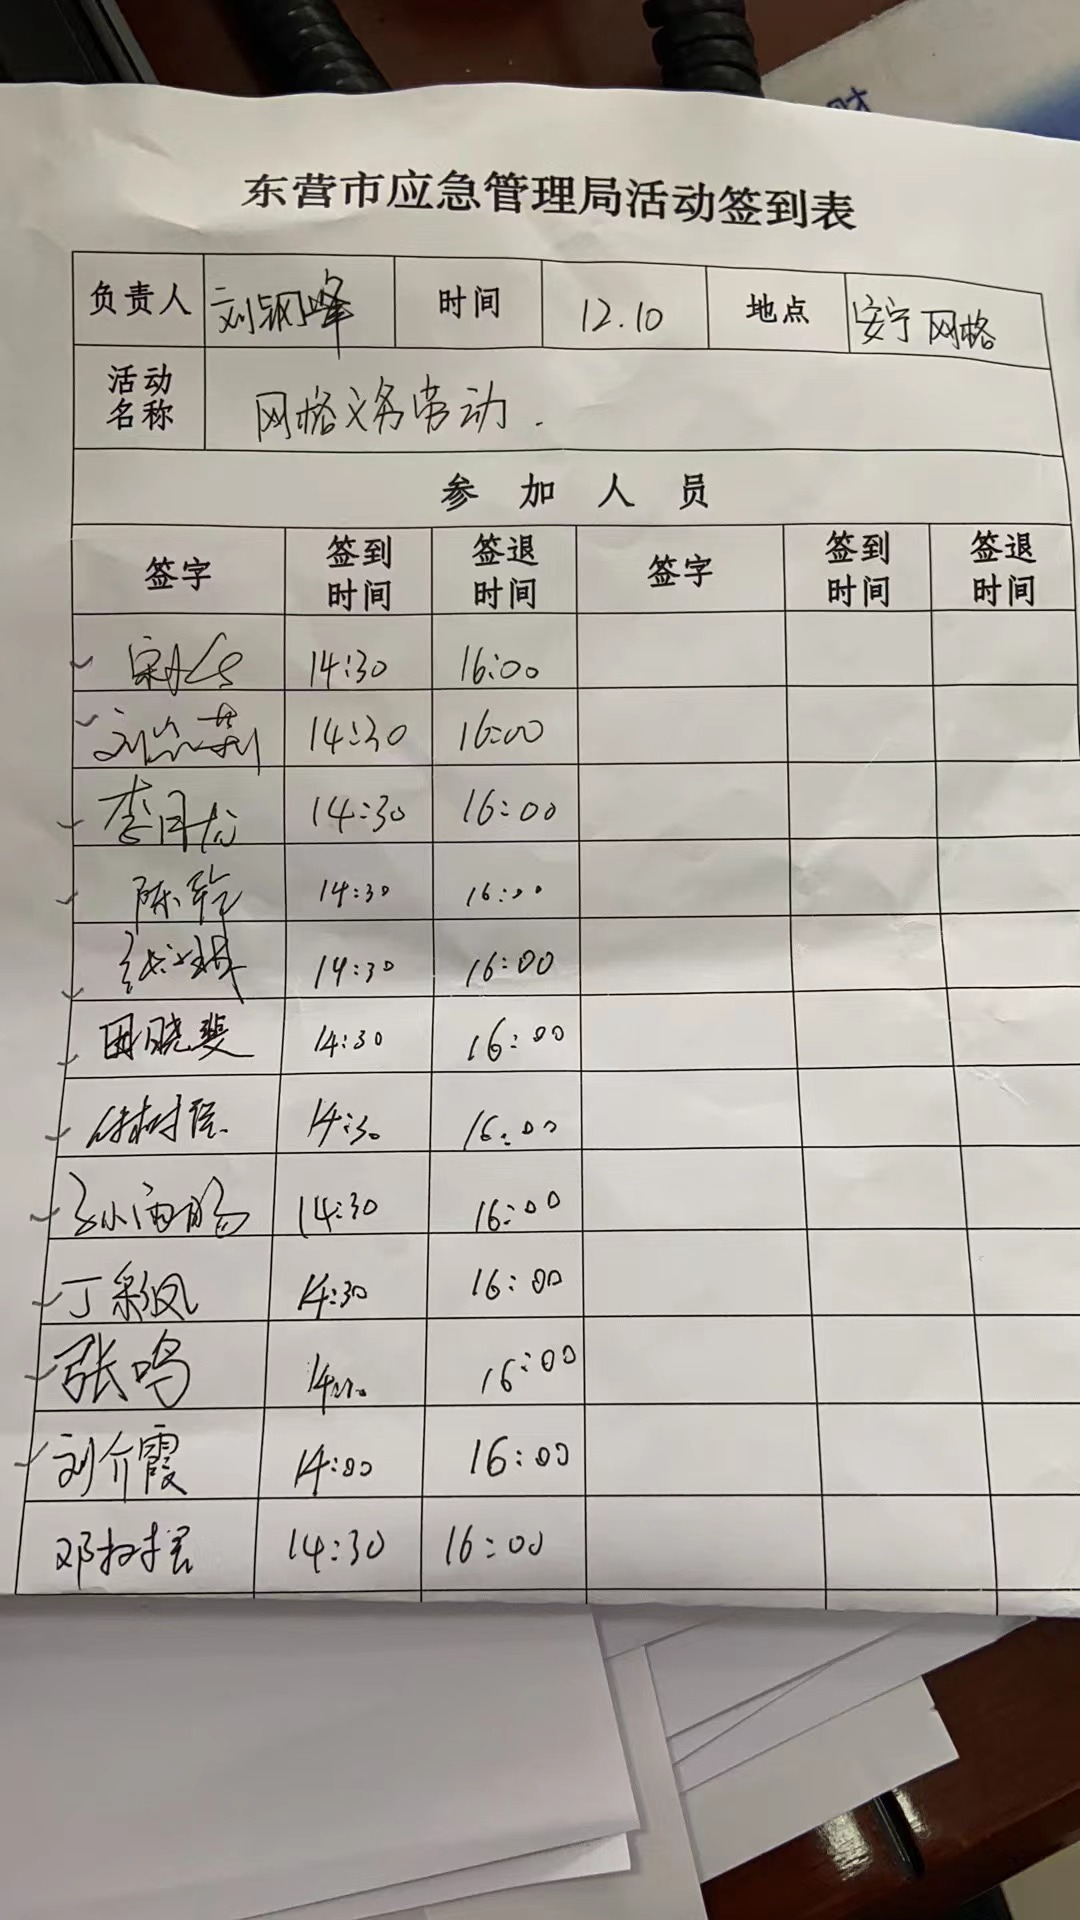 财
东营市应急管理局活动签到表
负责人 刘钢峰 时间 12.10 地点 安宁网格
活动名称 网格义务劳动.
参加人员
签字 签到时间 签退时间 签字 签到时间 签退时间
14:30 16:00
14:30 16:00
李月龙 14:30 16:00
陈 14:30 16:00
张 14:30 16:00
田晓斐 14:30 16:00
14:30 16:00
孙 14:30 16:00
丁彩凤 14:30 16:00
张鸣 16:00
刘介霞 14:00 16:00
邓 14:30 16:00